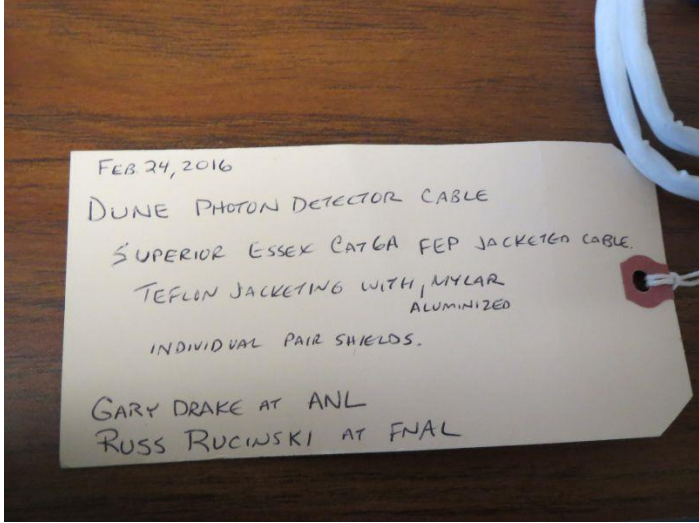 FEB 24, 2016
DUNE PHOTON DETECTOR CABLE
SUPERIOR ESSEX CAT6A FEP JACKETED CABLE.
TEFLON JACKETING WITH, MYLAR
ALUMINIZED
INDIVIDUAL PAIR SHIELDS.
GARY DRAKE AT ANL
RUSS RUCINSKI AT FNAL